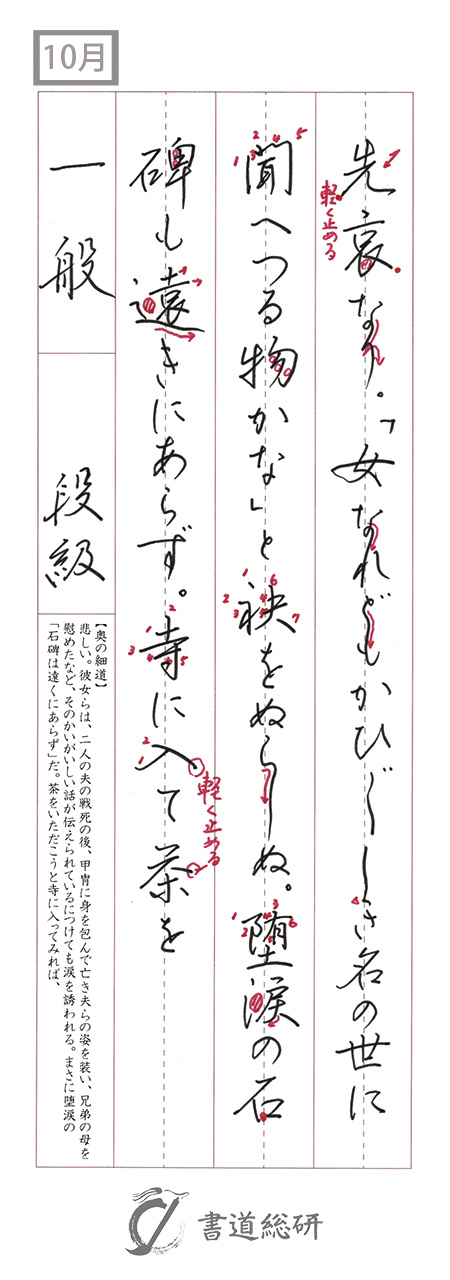 10月
先哀なり。「女なれどもかひ〴〵しき名の世に
軽く止める
聞へつる物かな」と袂をぬらしぬ。堕涙の石
碑も遠きにあらず。寺に入て茶を
軽く止める
一般
段級
【奥の細道】
悲しい。彼女らは、二人の夫の戦死の後、甲冑に身を包んで亡き夫らの姿を装い、兄弟の母を
慰めたなど、そのかいがいしい話が伝えられているにつけても涙を誘われる。まさに堕涙の
「石碑は遠くにあらず」だ。茶をいただこうと寺に入ってみれば、
書道総研